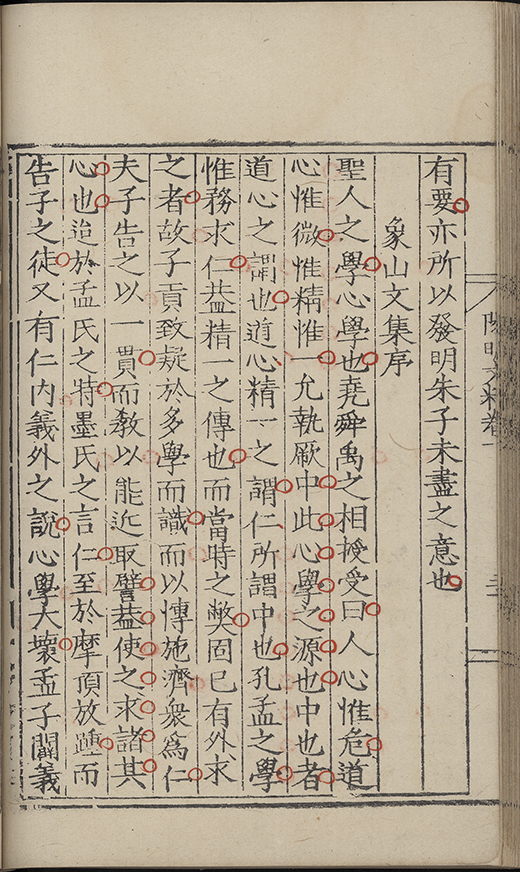 有要亦所以發明朱子未盡之意也
象山文集序
聖人之學心學也堯舜禹之相授受曰人心惟危道
心惟微惟精惟一允執厥中此心學之源也中也者
道心之謂也道心精一之謂仁所謂中也孔孟之學
惟務求仁葢精一之傳也而當時之獘固已有外求
之者故子貢致疑於多學而識而以博施濟衆爲仁
夫子告之以一貫而教以能近取譬葢使之求諸其
心也迨於孟氏之時墨氏之言仁至於摩頂放踵而
告子之徒又有仁内義外之說心學大壞孟子闢義
陽明文粹卷一
三